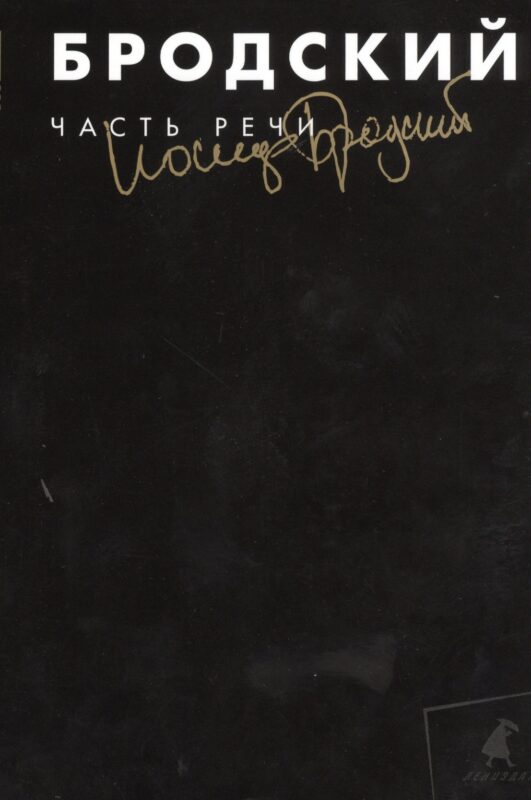 БРОДСКИЙ
ЧАСТЬ РЕЧИ
Иосиф Бродский
ЛЕНИЗДА